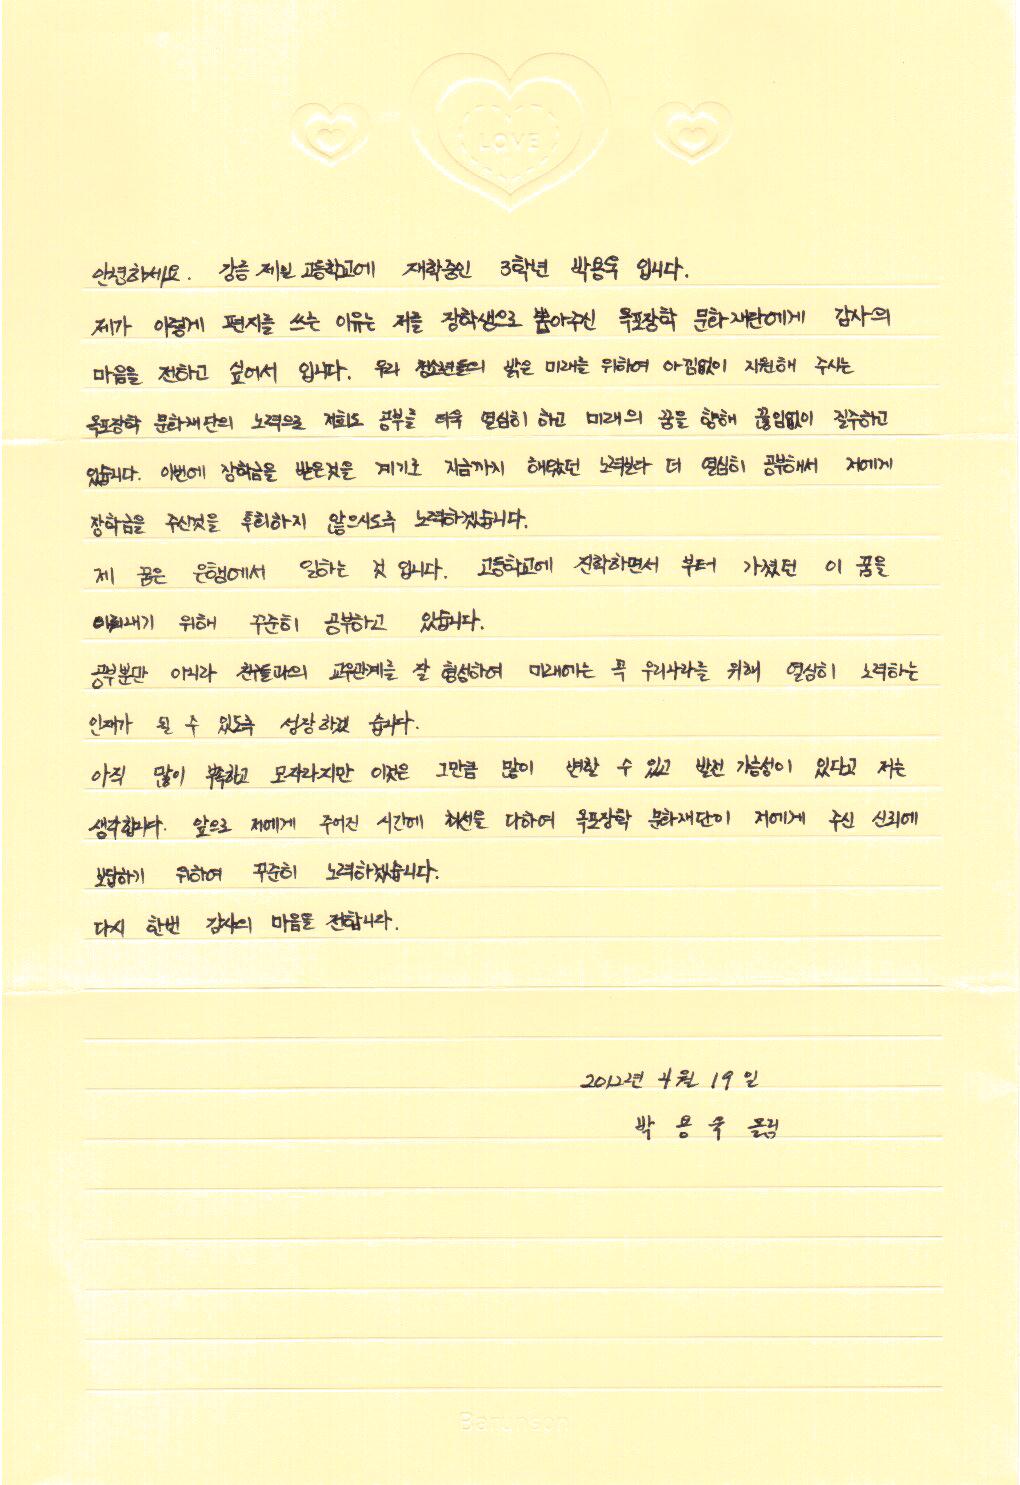 LOVE
안녕하세요. 강릉 제일 고등학교에 재학중인 3학년 박용욱 입니다.
제가 이렇게 편지를 쓰는 이유는 저를 장학생으로 뽑아주신 목포장학 문화재단에게 감사의
마음을 전하고 싶어서 입니다. 우리 청소년들의 밝은 미래를 위하여 아낌없이 지원해 주시는
목포장학 문화재단의 노력으로 저희도 공부를 더욱 열심히 하고 미래의 꿈을 향해 끊임없이 질주하고
있습니다. 이번에 장학금을 받은것을 계기로 지금까지 해왔던 노력보다 더 열심히 공부해서 저에게
장학금을 주신것을 후회하지 않으시도록 노력하겠습니다.
제 꿈은 은행에서 일하는 것 입니다. 고등학교에 진학하면서 부터 가졌던 이 꿈을
이뤄내기 위해 꾸준히 공부하고 있습니다.
공부뿐만 아니라 친구들과의 교우관계를 잘 형성하여 미래에는 꼭 우리나라를 위해 열심히 노력하는
인재가 될 수 있도록 성장하겠 습니다.
아직 많이 부족하고 모자라지만 이것은 그만큼 많이 변할 수 있고 발전 가능성이 있다고 저는
생각합니다. 앞으로 저에게 주어진 시간에 최선을 다하여 목포장학 문화재단이 저에게 주신 신뢰에
보답하기 위하여 꾸준히 노력하겠습니다.
다시 한번 감사의 마음을 전합니다.
2012년 4월 19일
박 용 욱 올림
Barunson